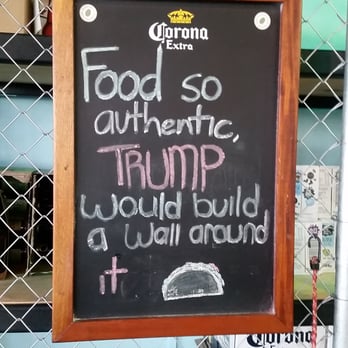 Corona
Extra
Food so
authentic,
TRUMP
would build
a wall around
it
Corona